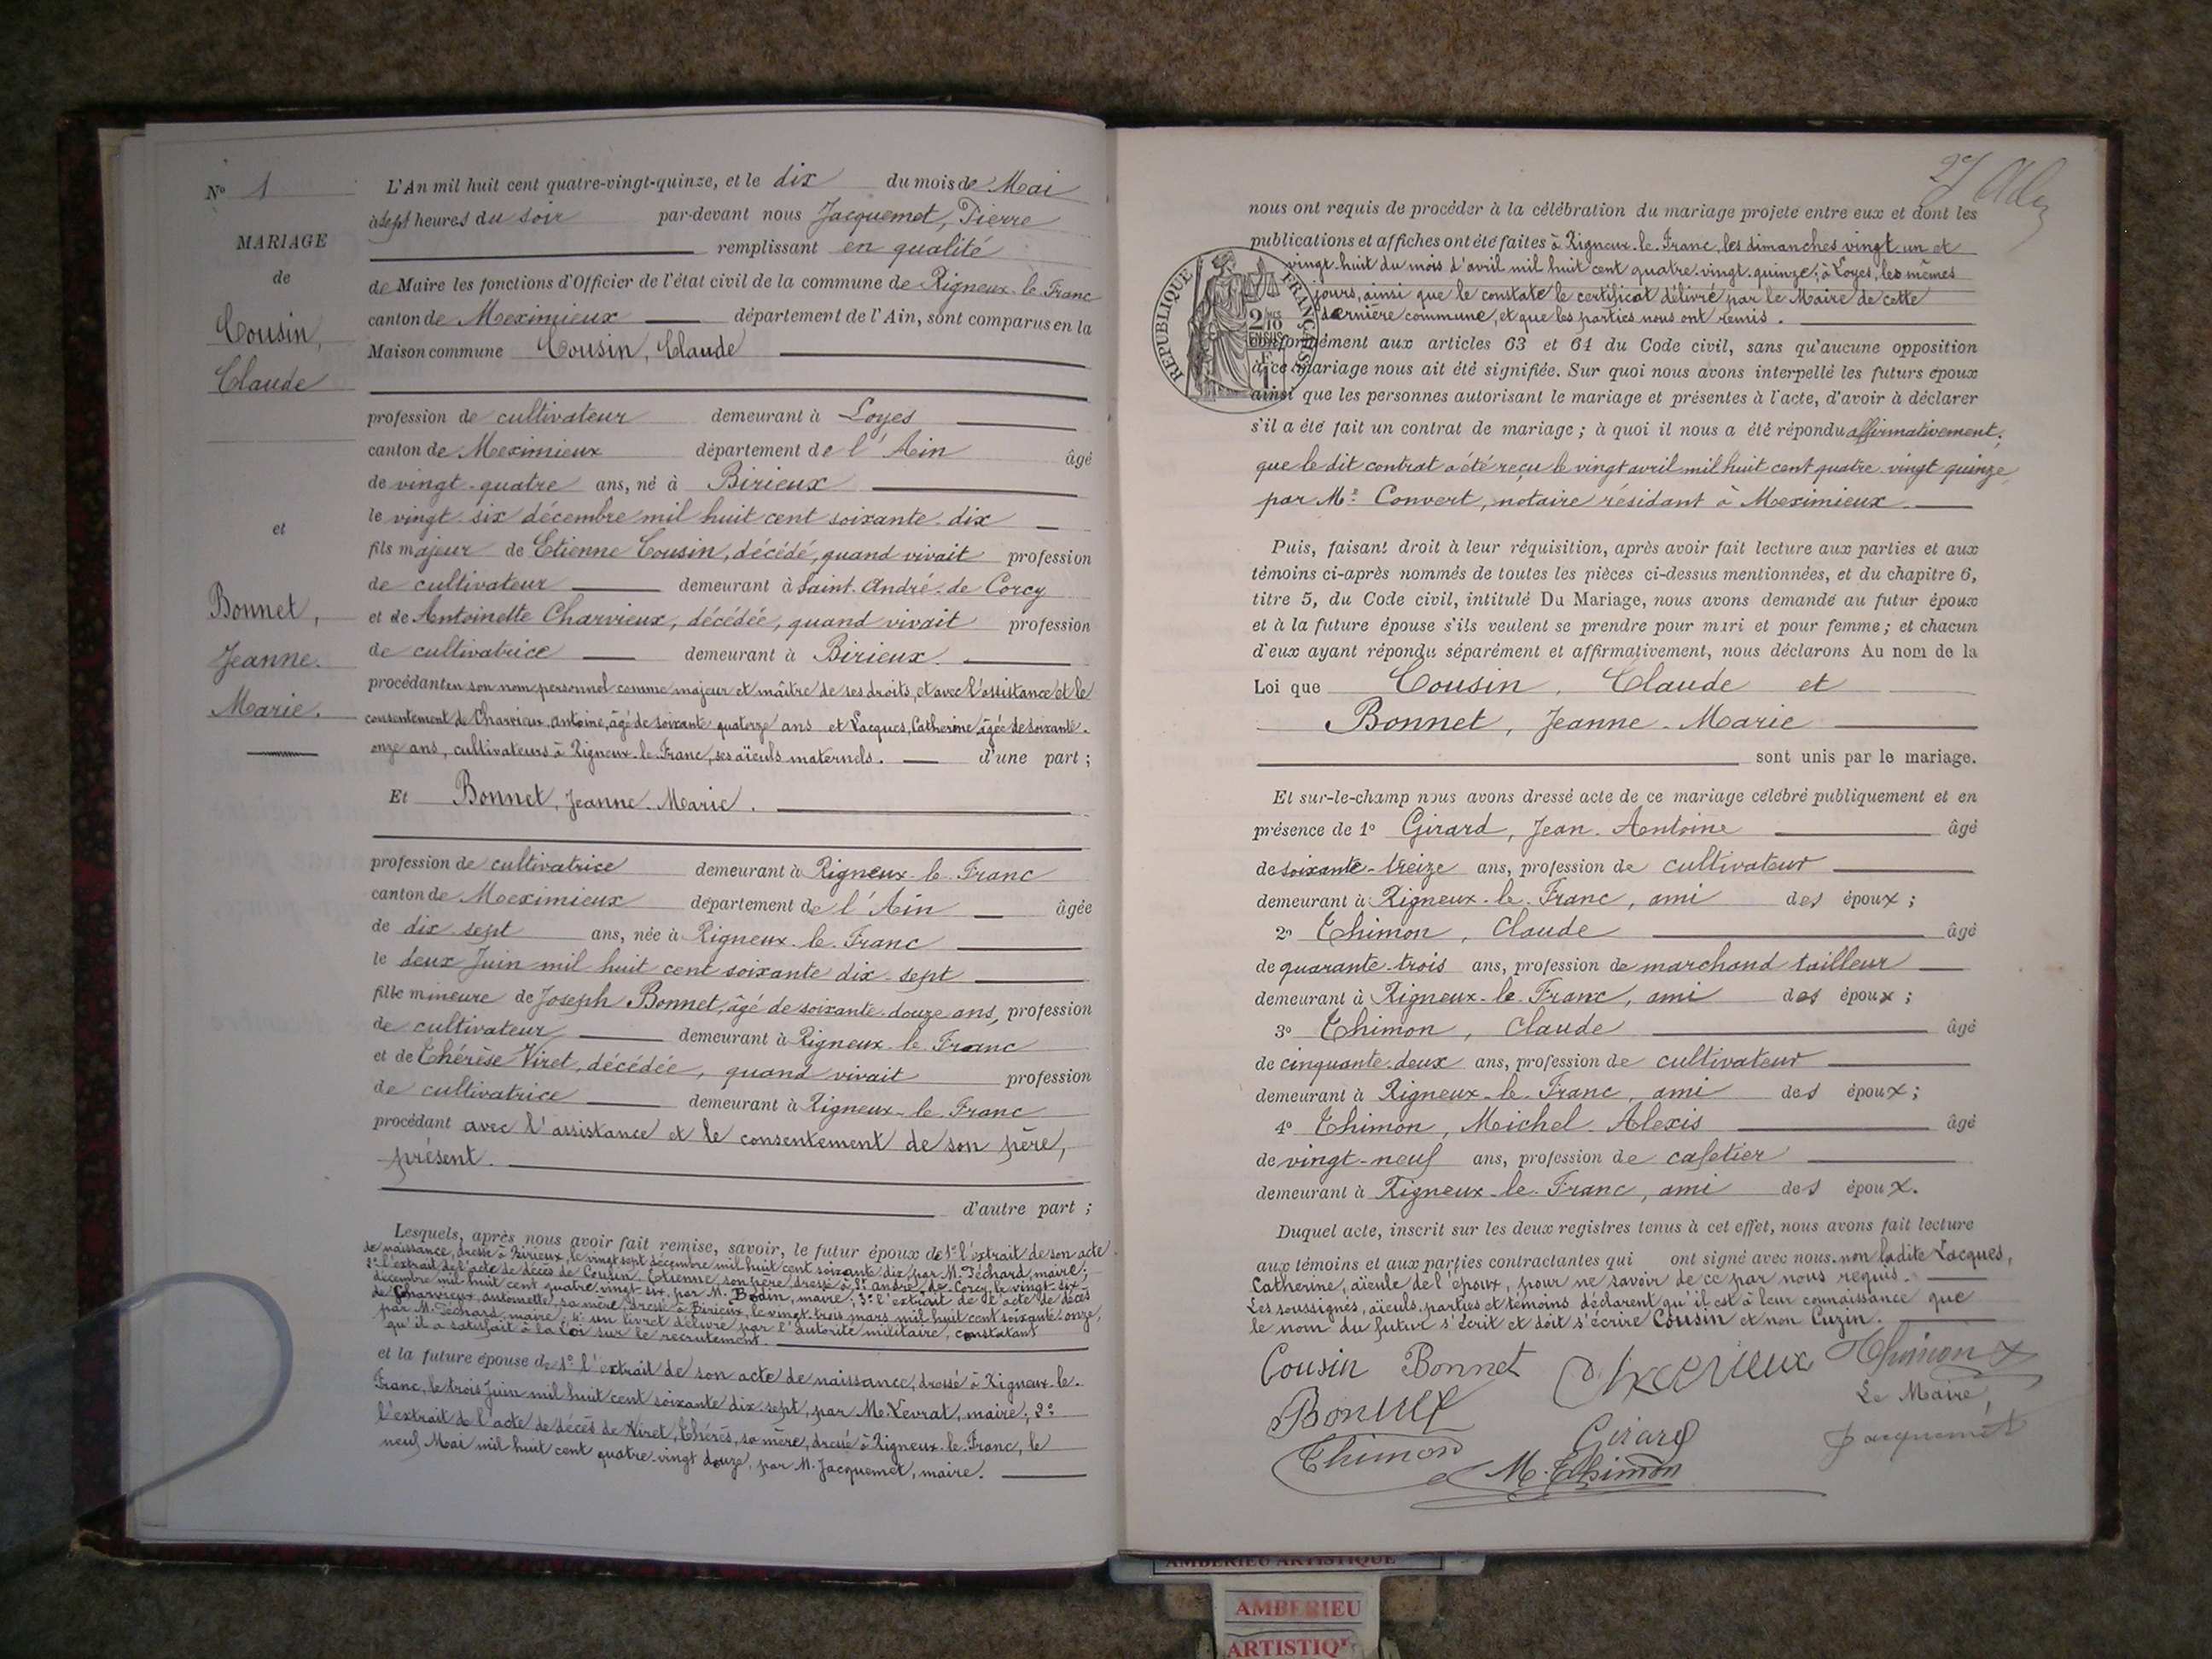 N° 1
MARIAGE
de
Cousin,
Claude
et
Bonnet,
Jeanne.
Marie.
L'An mil huit cent quatre-vingt-quinze, et le dix du mois de Mai
à sept heures du soir par-devant nous Jacquemet, Pierre
remplissant en qualité
de Maire les fonctions d'Officier de l'état civil de la commune de Rigneux-le-Franc
canton de Meximieux département de l'Ain, sont comparus en la
Maison commune Cousin, Claude
profession de cultivateur demeurant à Loyes
canton de Meximieux département de l'Ain âgé
de vingt-quatre ans, né à Birieux
le vingt-six décembre mil huit cent soixante-dix
fils majeur de Etienne Cousin, décédé, quand vivait profession
de cultivateur demeurant à Saint-André-de Corcy
et de Antoinette Charvieux, décédée, quand vivait profession
de cultivatrice demeurant à Birieux.
procédant en son nom personnel comme majeur et maître de ses droits, et avec l'assistance et le
consentement de Charvieux, Antoine, âgé de soixante quatorze ans et Lacques, Catherine, âgée de soixante-
onze ans, cultivateurs à Rigneux-le-Franc, ses aïeuls maternels. d'une part ;
Et Bonnet, Jeanne-Marie.
profession de cultivatrice demeurant à Rigneux-le-Franc
canton de Meximieux département de l'Ain âgée
de dix sept ans, née à Rigneux-le-Franc
le deux Juin mil huit cent soixante dix-sept
fille mineure de Joseph Bonnet, âgé de soixante-douze ans, profession
de cultivateur demeurant à Rigneux-le-Franc
et de Thérèse Viret, décédée, quand vivait profession
de cultivatrice demeurant à Rigneux-le-Franc
procédant avec l'assistance et le consentement de son père,
présent.
d'autre part ;
Lesquels, après nous avoir fait remise, savoir, le futur époux de 1° l'extrait de son acte
de naissance, dressé à Birieux, le vingt sept décembre mil huit cent soixante dix, par M. Péchard, maire ;
2° l'extrait de l'acte de décès de Cousin, Etienne, son père, dressé à St André-de Corcy, le vingt-six
décembre mil huit cent quatre-vingt-six, par M. Bodin, maire ; 3° l'extrait de l'acte de décès
de Charvieux, Antoinette, sa mère, dressé à Birieux, le vingt-trois mars mil huit cent soixante-onze,
par M. Péchard, maire ; 4° un livret délivré par l'autorité militaire, constatant
qu'il a satisfait à la Loi sur le recrutement.
et la future épouse de 1° l'extrait de son acte de naissance, dressé à Rigneux-le-
Franc, le trois Juin mil huit cent soixante dix-sept, par M. Levrat, maire ; 2°
l'extrait de l'acte de décès de Viret, Thérès, sa mère, dressé à Rigneux-le-Franc, le
neuf Mai mil huit cent quatre-vingt douze, par M. Jacquemet, maire.
27
nous ont requis de procéder à la célébration du mariage projeté entre eux et dont les
publications et affiches ont été faites à Rigneux-le-Franc, les dimanches vingt-un et
vingt-huit du mois d'avril mil huit cent quatre-vingt-quinze ; à Loyes, les mêmes
jours, ainsi que le constate le certificat délivré par le Maire de cette
dernière commune, et que les parties nous ont remis.
RÉPUBLIQUE FRANÇAISE
2/10
EN SUS
conformément aux articles 63 et 64 du Code civil, sans qu'aucune opposition
à ce mariage nous ait été signifiée. Sur quoi nous avons interpellé les futurs époux
ainsi que les personnes autorisant le mariage et présentes à l'acte, d'avoir à déclarer
s'il a été fait un contrat de mariage ; à quoi il nous a été répondu affirmativement,
que le dit contrat a été reçu le vingt avril mil huit cent quatre-vingt quinze
par Me Convert, notaire résidant à Meximieux.
Puis, faisant droit à leur réquisition, après avoir fait lecture aux parties et aux
témoins ci-après nommés de toutes les pièces ci-dessus mentionnées, et du chapitre 6,
titre 5, du Code civil, intitulé Du Mariage, nous avons demandé au futur époux
et à la future épouse s'ils veulent se prendre pour mari et pour femme ; et chacun
d'eux ayant répondu séparément et affirmativement, nous déclarons Au nom de la
Loi que Cousin, Claude et
Bonnet, Jeanne-Marie
sont unis par le mariage.
Et sur-le-champ nous avons dressé acte de ce mariage célébré publiquement et en
présence de 1° Girard, Jean-Antoine âgé
de soixante-treize ans, profession de cultivateur
demeurant à Rigneux-le-Franc, ami des époux ;
2° Thimon, Claude âgé
de quarante-trois ans, profession de marchand tailleur
demeurant à Rigneux-le-Franc, ami des époux ;
3° Thimon, Claude âgé
de cinquante-deux ans, profession de cultivateur
demeurant à Rigneux-le-Franc, ami des époux ;
4° Thimon, Michel-Alexis âgé
de vingt-neuf ans, profession de cafetier
demeurant à Rigneux-le-Franc, ami des époux.
Duquel acte, inscrit sur les deux registres tenus à cet effet, nous avons fait lecture
aux témoins et aux parties contractantes qui ont signé avec nous. non ladite Lacques,
Catherine, aïeule de l'époux, pour ne savoir de ce par nous requis.
Les soussignés, aïeuls, parties et témoins déclarent qu'il est à leur connaissance que
le nom du futur s'écrit et doit s'écrire Cousin et non Cuzin.
Cousin Bonnet Charvieux Thimon
Bonnet Le Maire,
Thimon Girard Jacquemet
M. Thimon
AMBERIEU ARTISTIQUE
AMBERIEU
ARTISTIQU